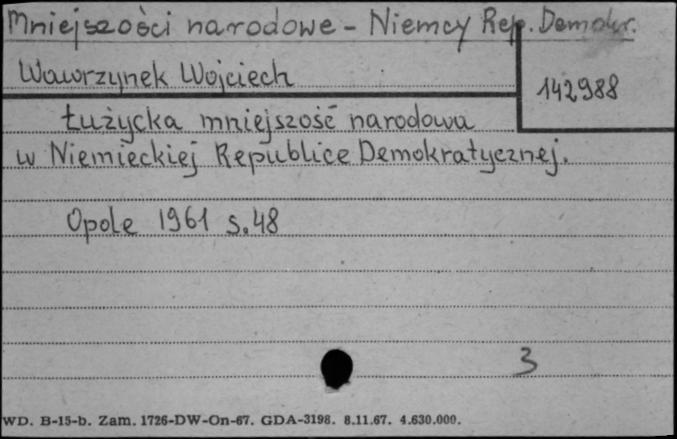 Mniejszości narodowe - Niemcy Rep. Demokr.
Wawrzynek Wojciech
142988
Łużycka mniejszość narodowa
w Niemieckiej Republice Demokratycznej.
Opole 1961 s. 48
3
WD. B-15-b. Zam. 1726-DW-On-67. GDA-3198. 8.11.67. 4.630.000.